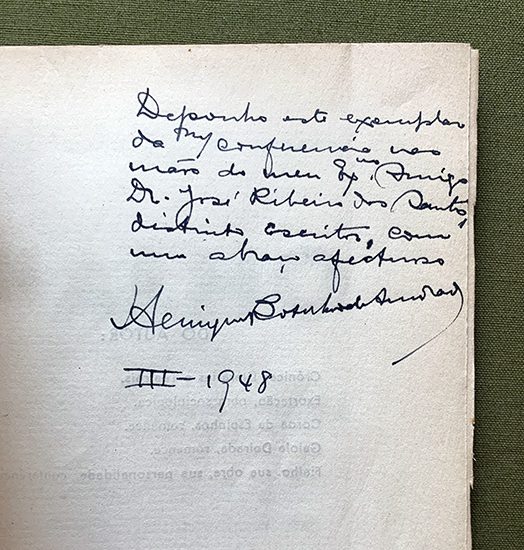 Deponho este exemplar
da mᵃ conferência nas
mãos do meu Exᵐᵒ Amigo
Dr. José Ribeiro dos Santos,
distinto escritor, com
um abraço afectuoso
Henrique Botelho de Andrade
III-1948
DO AUTOR:
Coroa de Espinhos, romance.
Gaiola Doirada, romance.
Fialho, sua obra, sua personalidade